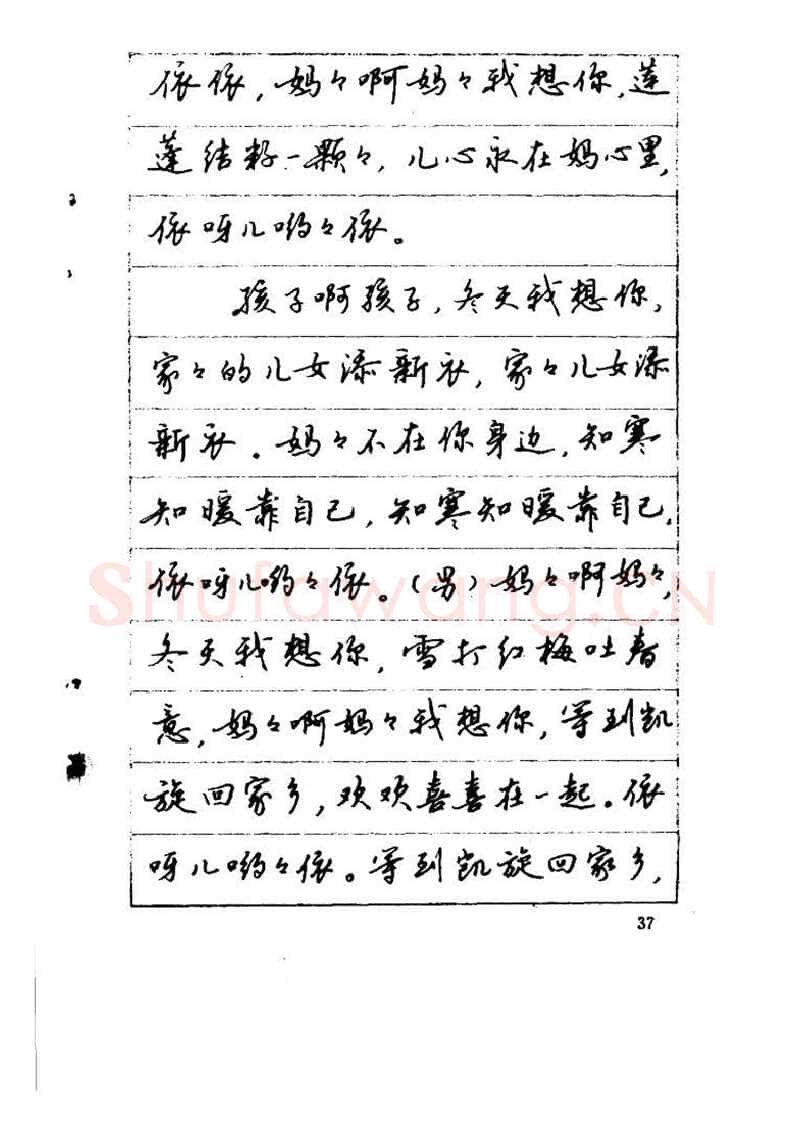 依依，妈々啊妈々我想你，莲
蓬结籽一颗々，儿心永在妈心里，
依呀儿哟々依。
孩子啊孩子，冬天我想你，
家々的儿女添新衣，家々儿女添
新衣。妈々不在你身边，知寒
知暖靠自己，知寒知暖靠自己，
依呀儿哟々依。（男）妈々啊妈々，
冬天我想你，雪打红梅吐春
意，妈々啊妈々我想你，等到凯
旋回家乡，欢欢喜喜在一起。依
呀儿哟々依。等到凯旋回家乡，
37
Shufawang.CN